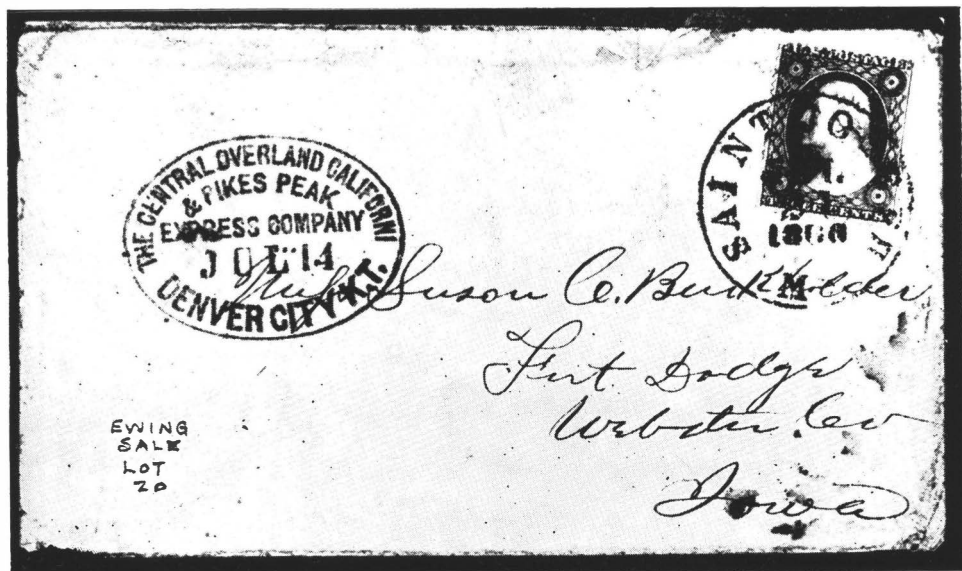 THE CENTRAL OVERLAND CALIFORNI
& PIKES PEAK
EXPRESS COMPANY
JUL 14
DENVER CITY K.T.
SAINT
M
Susan C.
Fort Dodge
Webster Co
Iowa
EWING
SALE
LOT
20